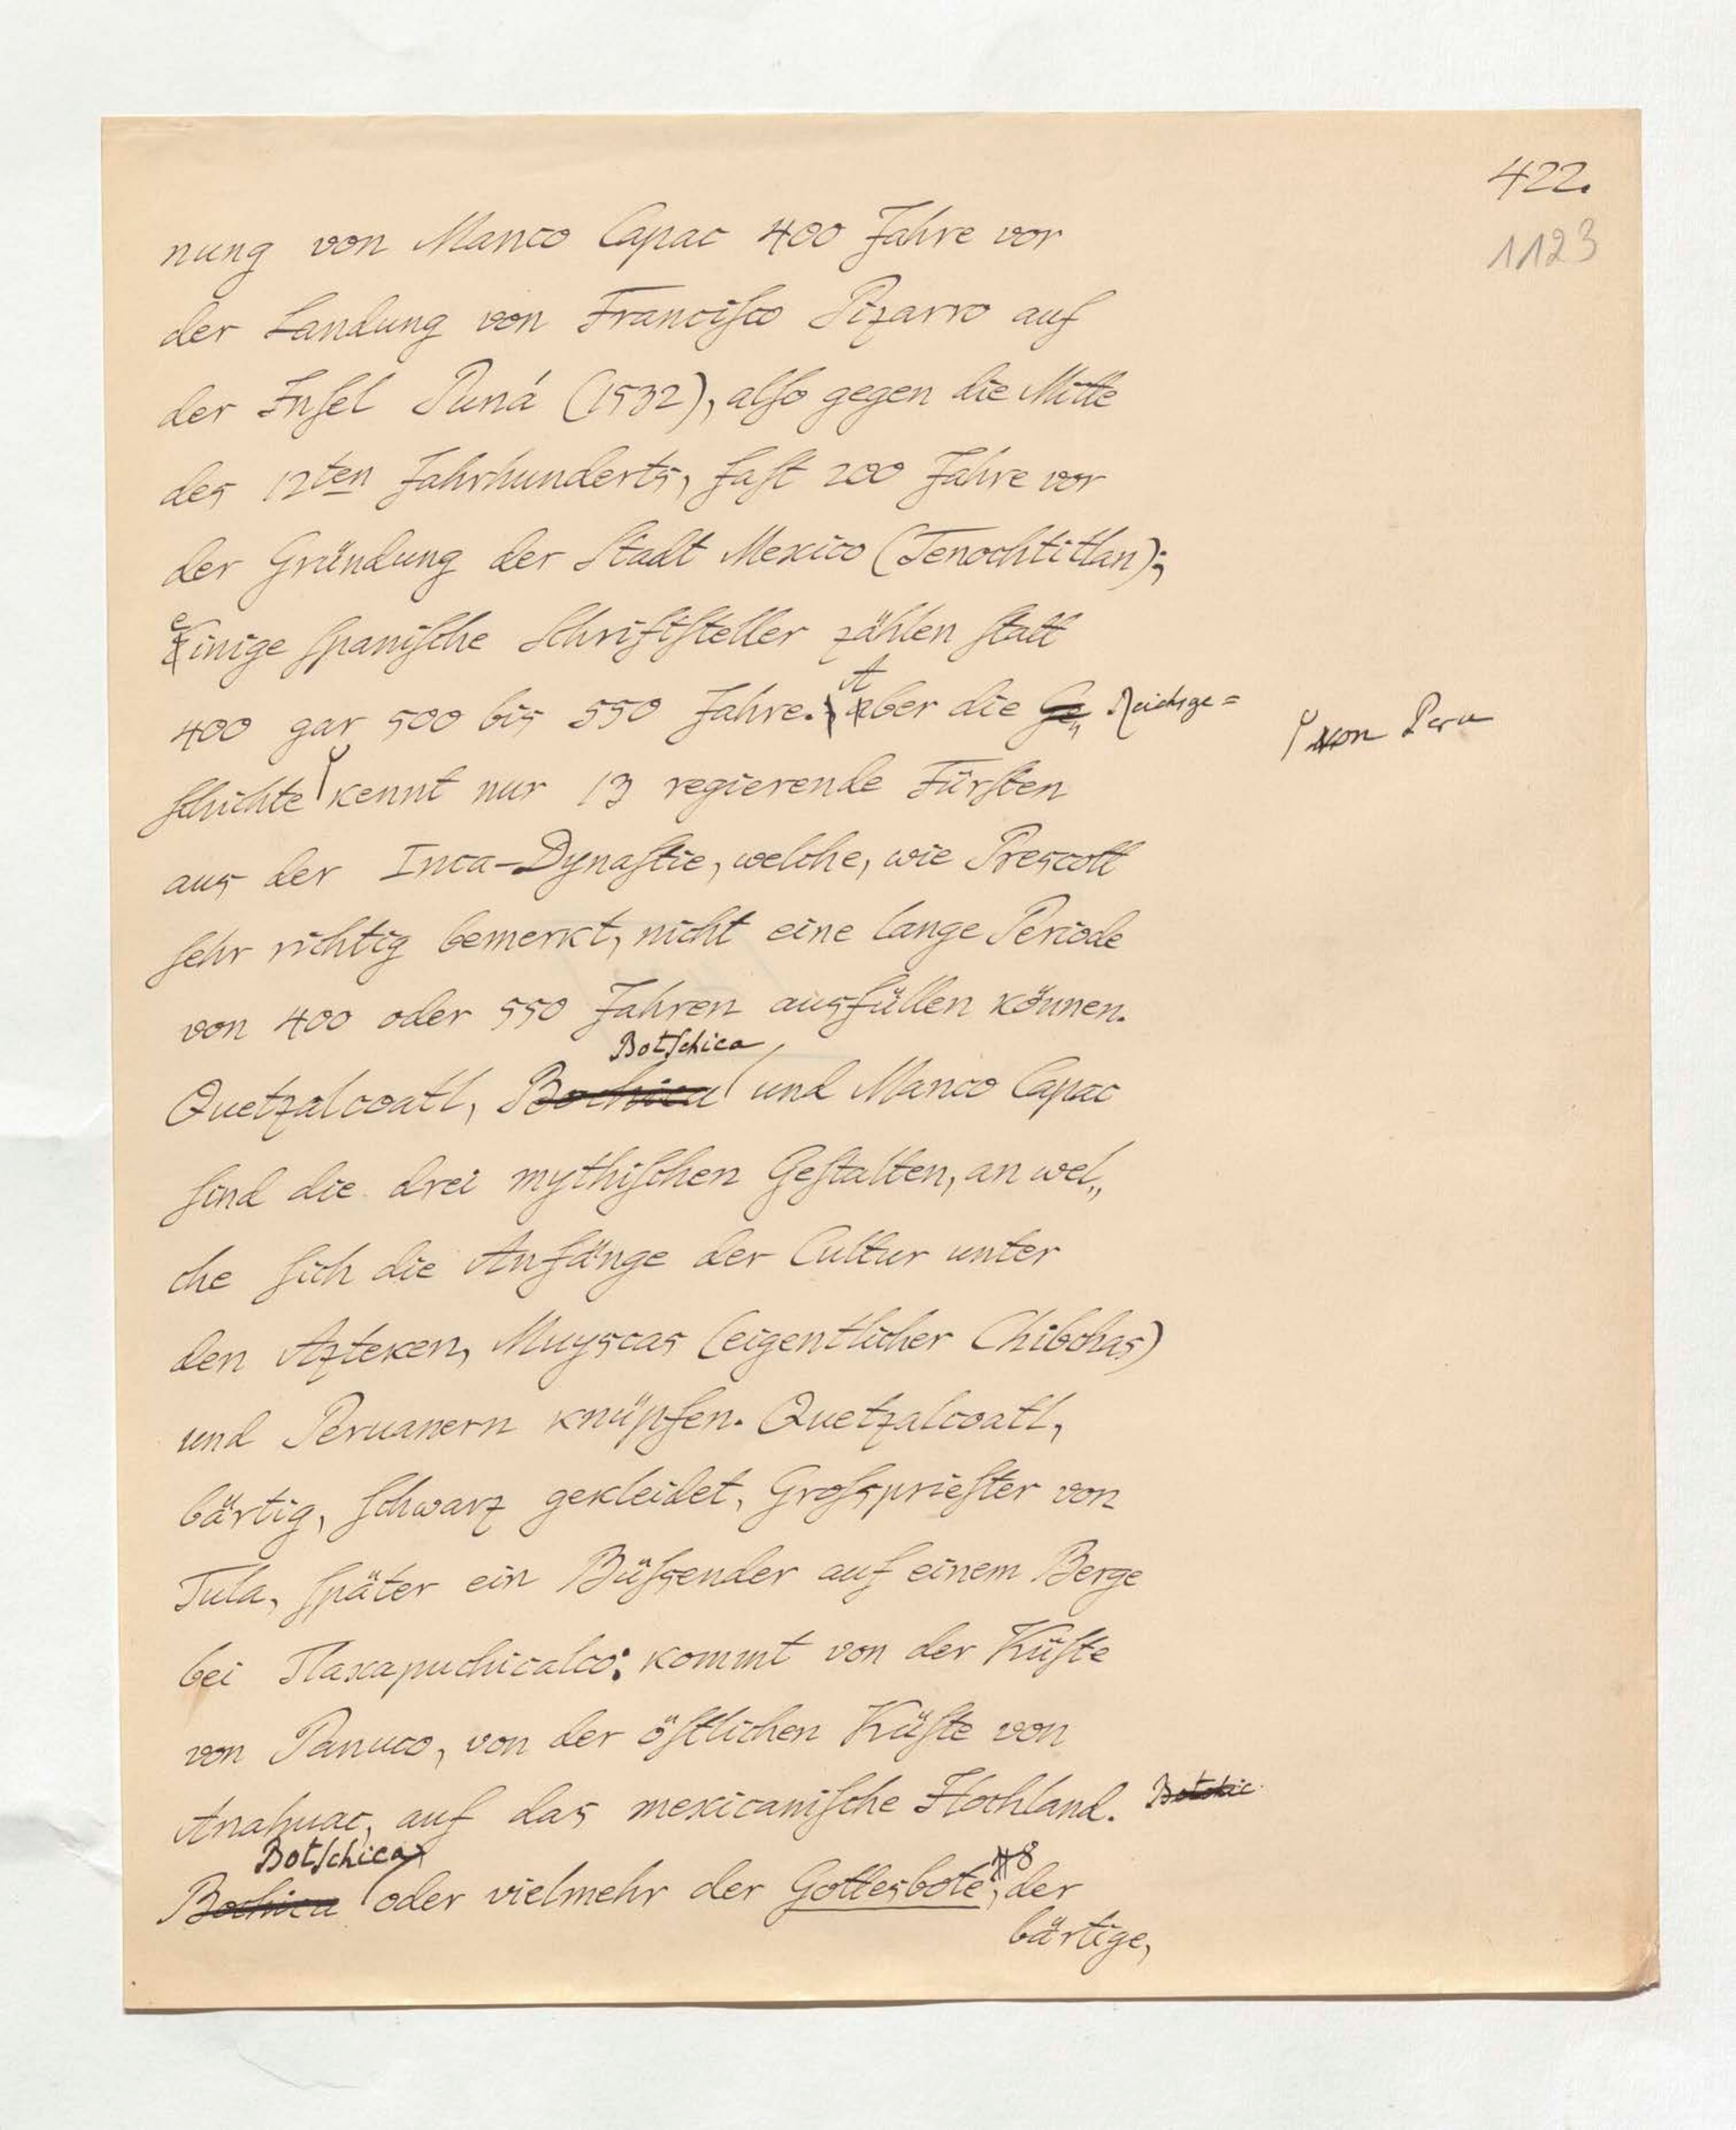 422.
1123
nung von Manco Capac 400 Jahre vor
der Landung von Franciſco Pizarro auf
der Inſel Puná (1532), alſo gegen die Mitte
des 12ten Jahrhunderts, faſt 200 Jahre vor
der Gründung der Stadt Mexico (Tenochtitlan);
einige ſpaniſche Schriftſteller zählen ſtatt
400 gar 500 bis 550 Jahre. Aber die Ge„ Reichsge=
ſchichte kennt nur 13 regierende Fürſten
von Peru
aus der Inca-Dynaſtie, welche, wie Prescott
ſehr richtig bemerkt, nicht eine lange Periode
von 400 oder 550 Jahren ausfüllen können.
Botſchica
Quetzalcoatl, Bochica und Manco Capac
ſind die drei mythiſchen Geſtalten, an wel„
che ſich die Anfänge der Cultur unter
den Azteken, Muyscas (eigentlicher Chibchas)
und Peruanern knüpfen. Quetzalcoatl,
bärtig, ſchwarz gekleidet, Groſsprieſter von
Tula, ſpäter ein Büſsender auf einem Berge
bei Tlaxapuchicalco: kommt von der Küſte
von Panuco, von der öſtlichen Küſte von
Anahuac, auf das mexicaniſche Hochland. Botchic
Botſchica
Bochica oder vielmehr der Gottesbote, 8 der
bärtige,